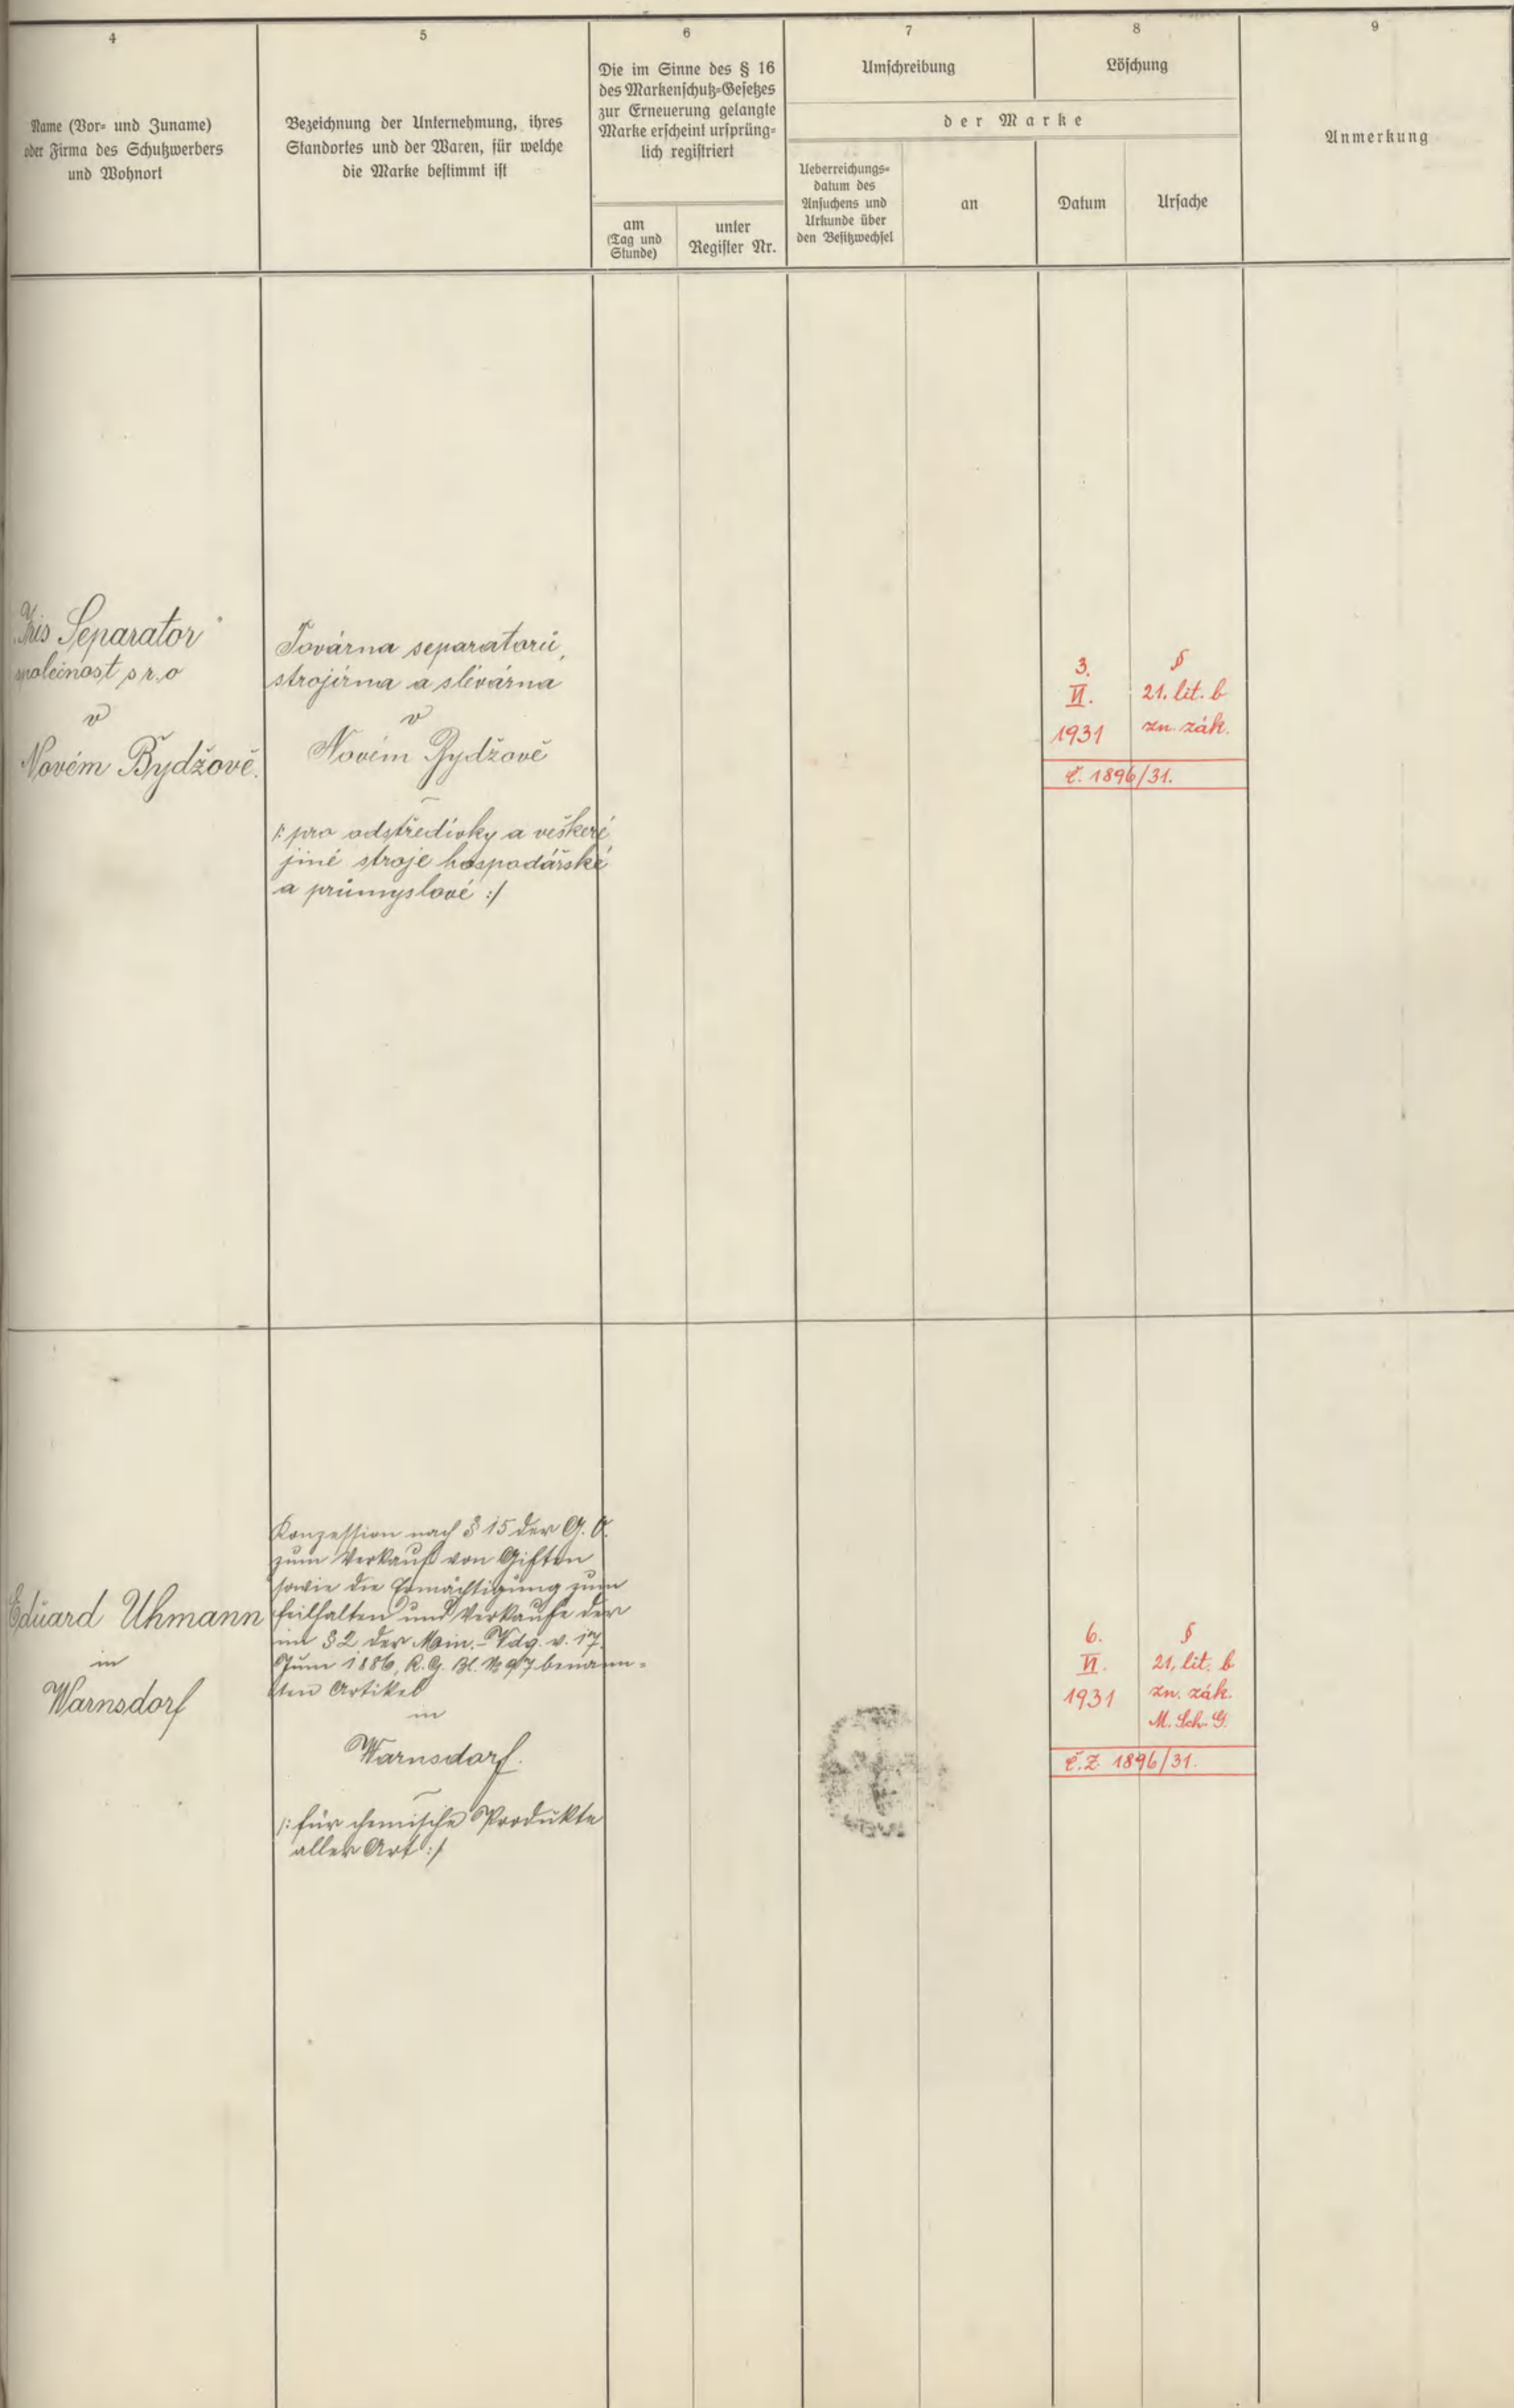 4
Name (Vor- und Zuname)
oder Firma des Schutzwerbers
und Wohnort
5
Bezeichnung der Unternehmung, ihres
Standortes und der Waren, für welche
die Marke bestimmt ist
6
Die im Sinne des § 16
des Markenschutz-Gesetzes
zur Erneuerung gelangte
Marke erscheint ursprüng-
lich registriert
am
(Tag und
Stunde)
unter
Register Nr.
7
Umschreibung
8
Löschung
der Marke
Ueberreichungs-
datum des
Ansuchens und
Urkunde über
den Besitzwechsel
an
Datum
Ursache
9
Anmerkung
"Iris Separator"
společnost s r. o
v
Novém Bydžově.
Továrna separatorů,
strojírna a slévárna
v
Novém Bydžově
/: pro odstředivky a veškeré
jiné stroje hospodářské
a průmyslové :/
3.
VI.
1931
§
21. lit. b
zn. zák.
č. 1896/31.
Eduard Uhmann
in
Warnsdorf
Konzession nach § 15 der G. O.
zum Verkauf von Giften
sowie die Ermächtigung zum
Feilhalten und Verkaufe der
im § 2 der Min.-Vdg. v. 17.
Juni 1886, R. G. Bl. № 97 benann-
ten Artikel
in
Warnsdorf.
/: für chemische Produkte
aller Art :/
6.
VI.
1931
§
21, lit. b
zn. zák.
M. Sch. G.
č. Z. 1896/31.